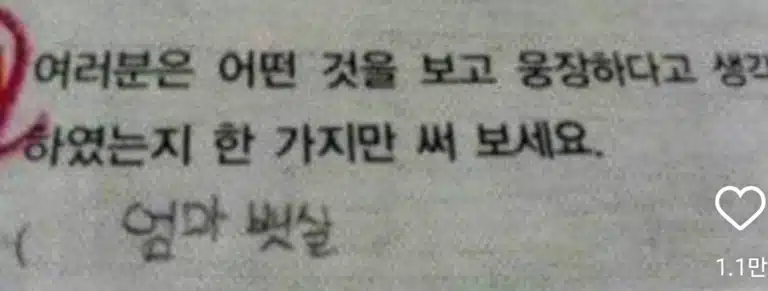 여러분은 어떤 것을 보고 웅장하다고 생각
하였는지 한 가지만 써 보세요.
( 엄마 뱃살
1.1만